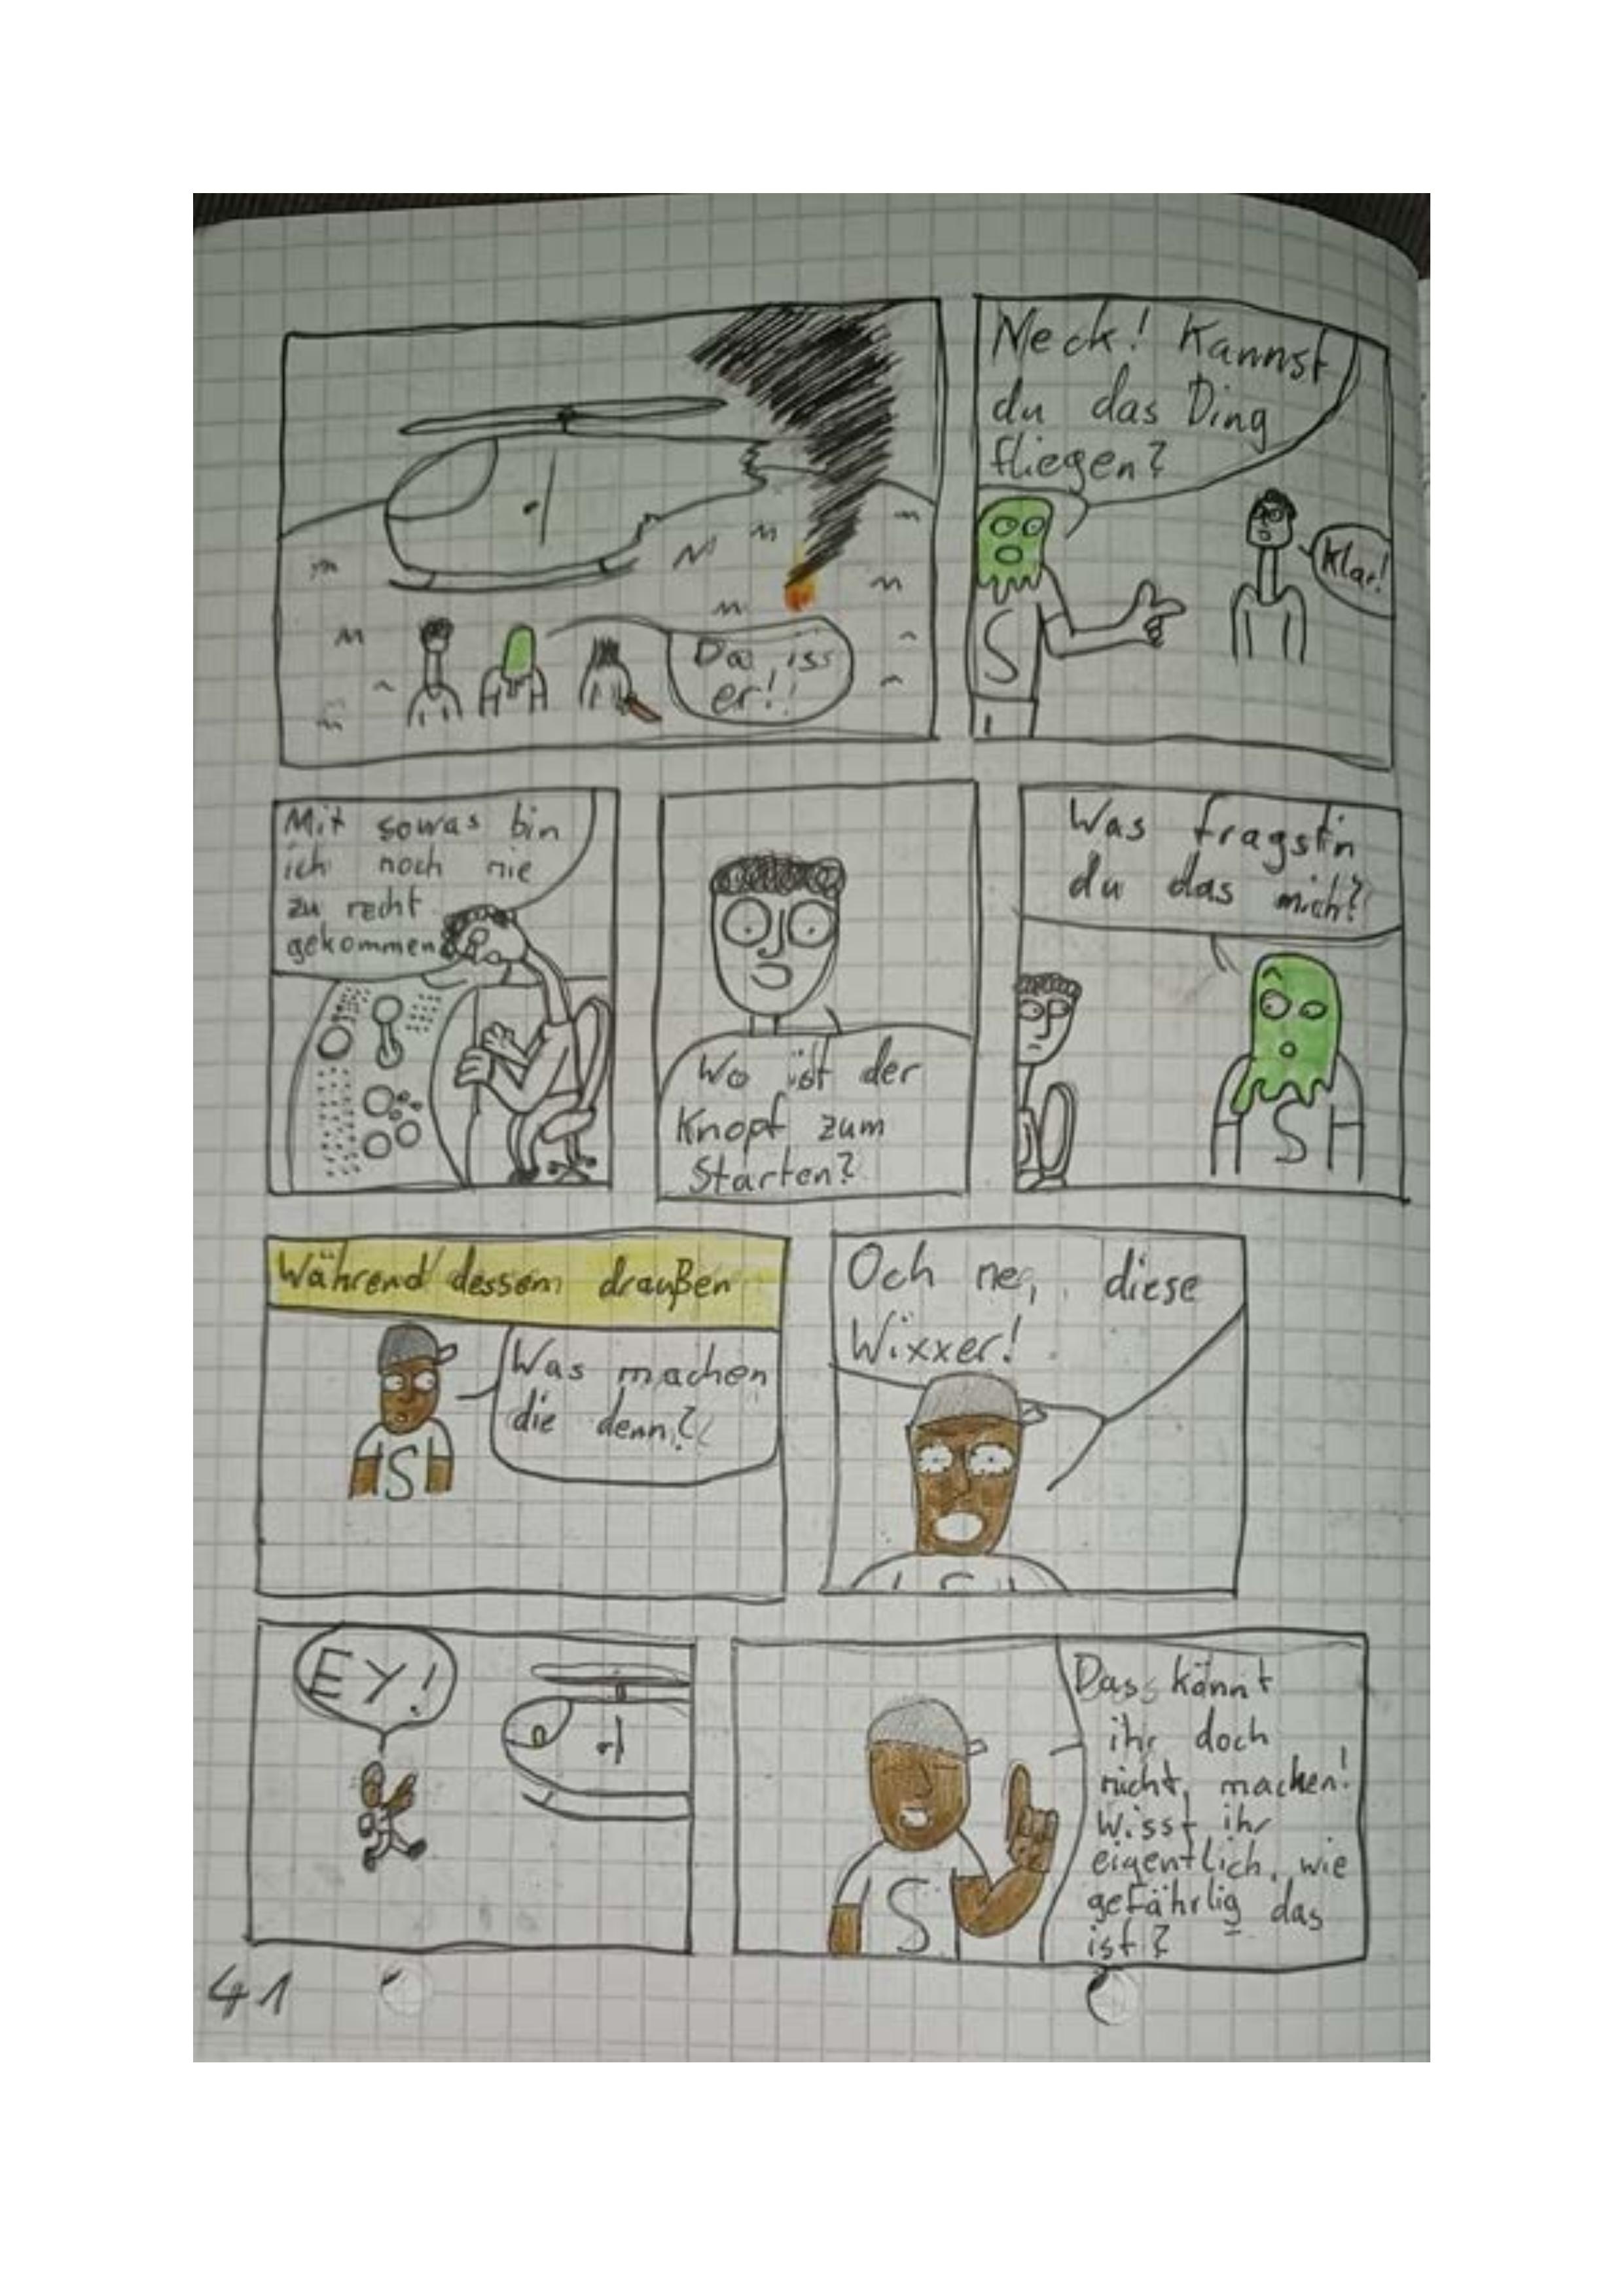 Da iss
er!
Neck! Kannst
du das Ding
fliegen?
Klar!
Mit sowas bin
ich noch nie
zu recht
gekommen
Wo ist der
Knopf zum
Starten?
Was fragst'n
du das mich?
Während dessem draußen
Was machen
die denn?
Och ne, diese
Wixxer!
EY!
Das könnt
ihr doch
nicht machen!
Wisst ihr
eigentlich, wie
gefährlig das
ist?
S
S
S
S
41